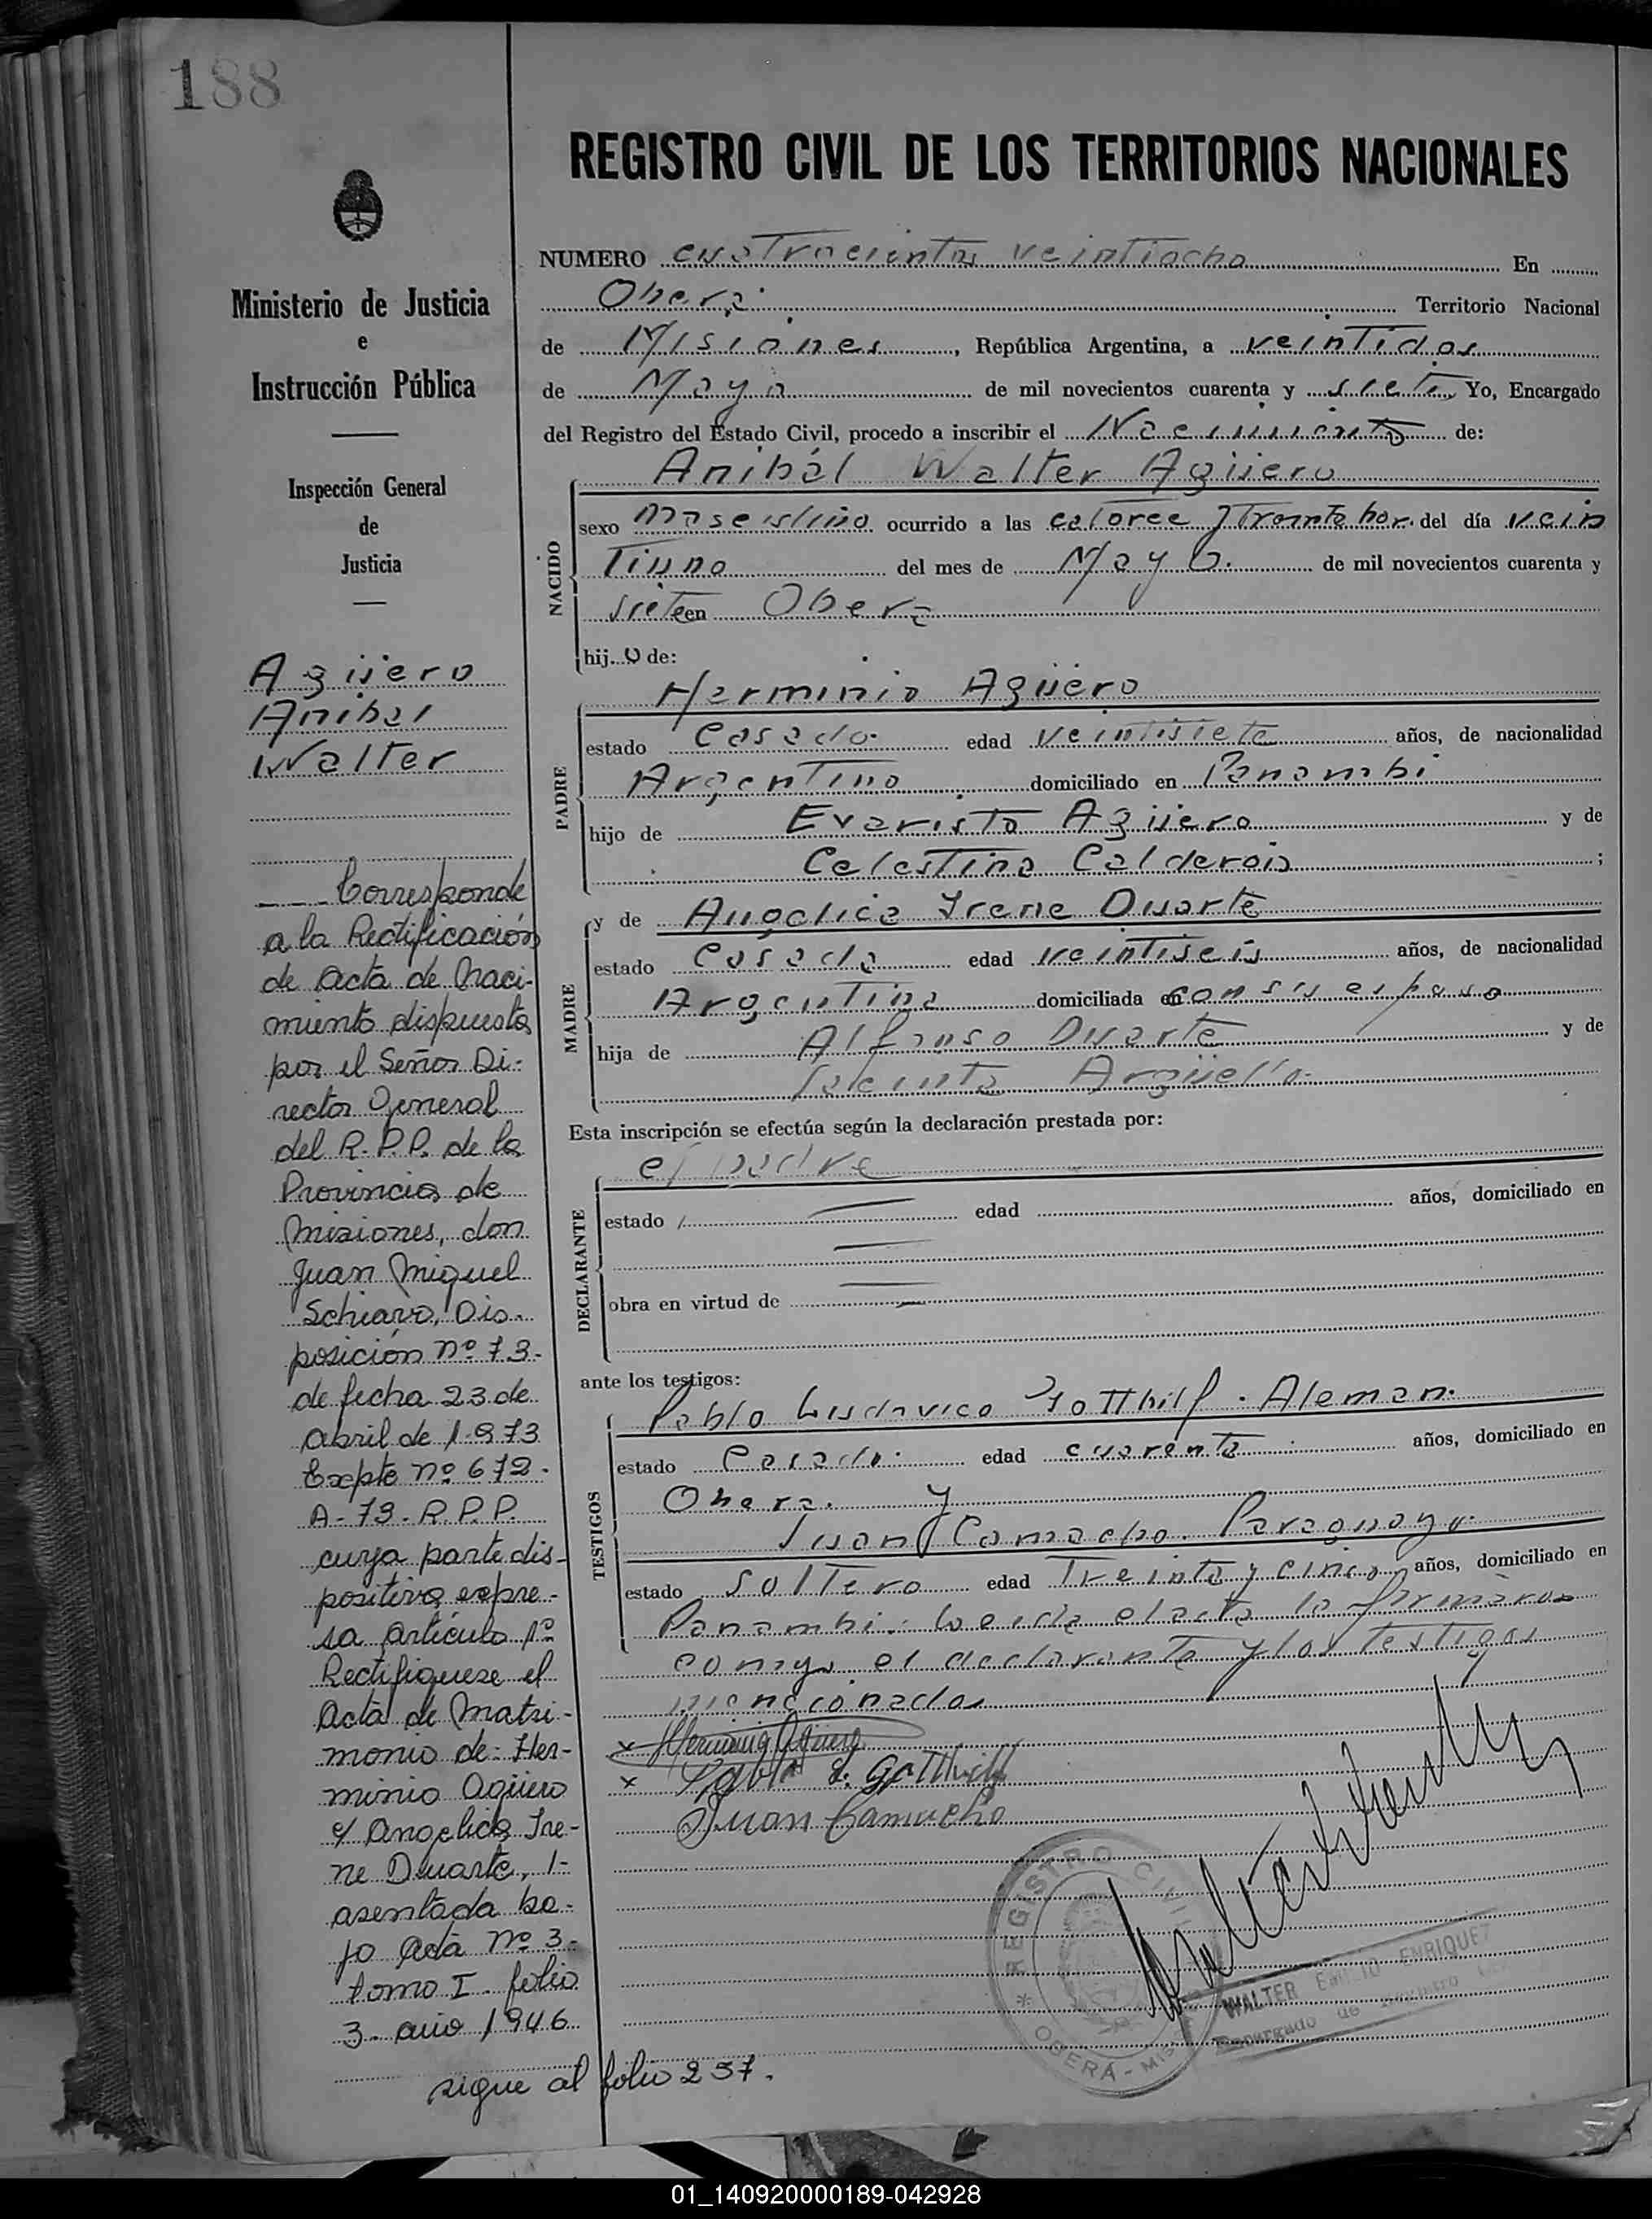 188
REGISTRO CIVIL DE LOS TERRITORIOS NACIONALES
Ministerio de Justicia
e
Instrucción Pública
Inspección General
de
Justicia
Agüero
Anibal
Walter
---Corresponde
a la Rectificación
de acta de Naci-
miento dispuesta
por el Señor Di-
rector General
del R. P. P. de la
Provincia de
Misiones, don
Juan Miguel
Schiavo, Dis-
posición nº 73-
de fecha 23 de
abril de 1973
Expte nº 672-
A-73-R.P.P.
cuya parte dis-
positiva expre-
sa artículo 1º
Rectifiquese el
Acta de Matri-
monio de: Her-
minio Agüero
y Angelica Ire-
ne Duarte, 1-
asentada ba-
jo Acta nº 3-
tomo I. folio
3- año 1946
sigue al folio 257.
NUMERO cuatrocientos veintiocho En
Obera Territorio Nacional
de Misiones, República Argentina, a veintidos
de Mayo de mil novecientos cuarenta y siete Yo, Encargado
del Registro del Estado Civil, procedo a inscribir el Nacimiento de:
Anibál Walter Agüero
NACIDO
sexo masculino ocurrido a las catorce y treinta hor. del día vein
tiuno del mes de Mayo. de mil novecientos cuarenta y
siete en Obera
hijo de:
Herminio Agüero
PADRE
estado Casado edad veintisiete años, de nacionalidad
Argentino domiciliado en Panambi
hijo de Evaristo Agüero y de
Celestina Calderois;
MADRE
y de Angelica Irene Duarte
estado Casada edad veintiseis años, de nacionalidad
Argentina domiciliada en con su esposo
hija de Alfonso Duarte y de
Jacinta Argüello
Esta inscripción se efectúa según la declaración prestada por:
el padre
DECLARANTE
estado edad años, domiciliado en
obra en virtud de
ante los testigos:
TESTIGOS
Pablo Ludovico Gotthilf. Aleman.
estado Casado. edad cuarenta años, domiciliado en
Obera. y
Juan Camacho. Paraguayo.
estado Soltero edad treinta y cinco años, domiciliado en
Panambi. Leida el acta la firmaron
conmigo el declarante y los testigos
mencionados
x Herminio Agüero
x Pablo L. Gotthilf
Juan Camacho
REGISTRO CIVIL
* OBERÁ - MIS
WALTER EMILIO ENRIQUEZ
Encargado de Registro
01_140920000189-042928